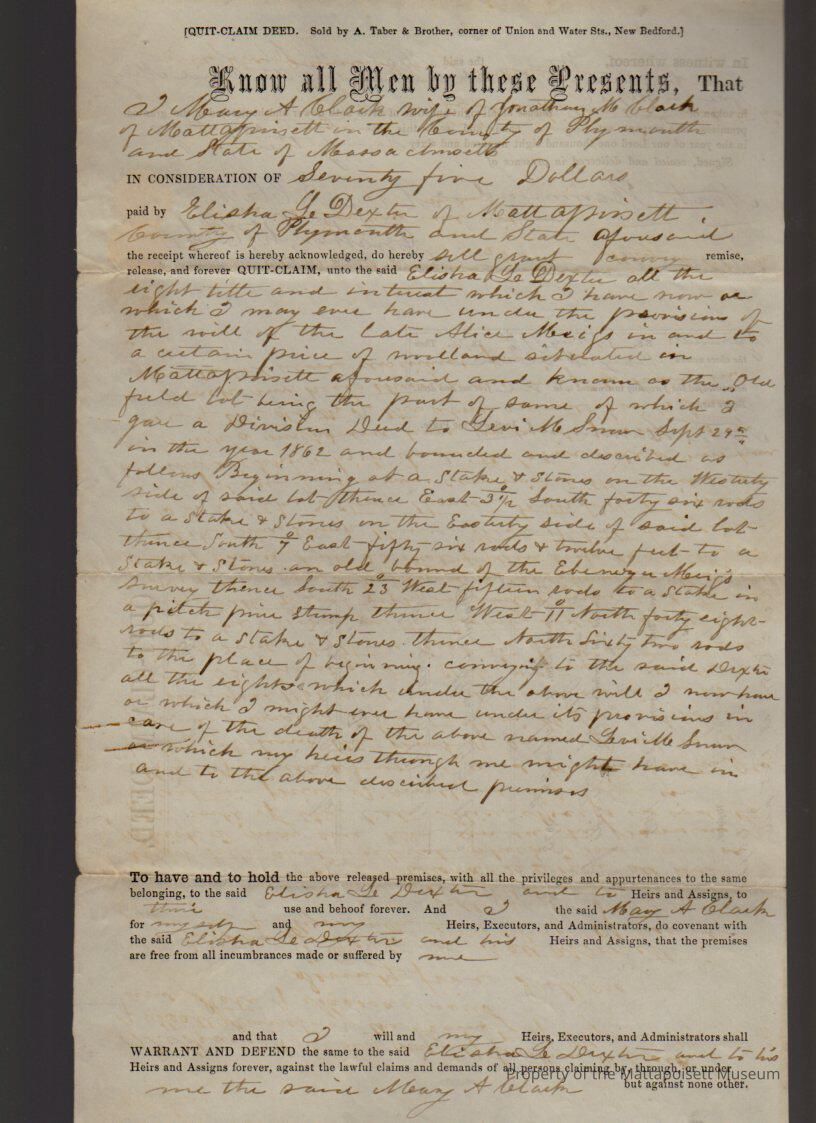 [QUIT-CLAIM DEED. Sold by A. Taber & Brother, corner of Union and Water Sts., New Bedford.]
Know all Men by these Presents, That
I Mary A Clark wife of Jonathan M Clark
of Mattapoisett in the County of Plymouth
and State of Massachusetts
IN CONSIDERATION OF Seventy five Dollars
paid by Elisha L Dexter of Mattapoisett
County of Plymouth and State aforesaid
the receipt whereof is hereby acknowledged, do hereby sell grant convey remise,
release, and forever QUIT-CLAIM, unto the said Elisha L Dexter all the
right title and interest which I have now or
which I may ever have under the provisions of
the will of the late Alice Meigs in and to
a certain piece of woodland situated in
Mattapoisett aforesaid and known as the "Old
field lot being the part of same of which I
gave a Division Deed to Levi M Snow Sept 29th
in the year 1862 and bounded and described as
follows Beginning at a Stake & Stones on the Westerly
side of said lot thence East 3½° South forty six rods
to a Stake & Stones on the Easterly side of said lot
thence South 7° East fifty six rods & twelve feet to a
Stake & Stones an old bound of the Ebenezer Meigs
Survey thence South 23° West fifteen rods to a Stake in
a pitch pine stump thence West 11° North forty eight
rods to a Stake & Stones thence North Sixty two rods
to the place of beginning. conveying to the said Dexter
all the rights which under the above will I now have
or which I might ever have under its provisions in
case of the death of the above named Levi M Snow
or which my heirs through me might have in
and to the above described premises
To have and to hold the above released premises, with all the privileges and appurtenances to the same
belonging, to the said Elisha L Dexter and to Heirs and Assigns, to
their use and behoof forever. And I the said Mary A Clark
for myself and my Heirs, Executors, and Administrators, do covenant with
the said Elisha L Dexter and his Heirs and Assigns, that the premises
are free from all incumbrances made or suffered by me
and that I will and my Heirs, Executors, and Administrators shall
WARRANT AND DEFEND the same to the said Elisha L Dexter and to his
Heirs and Assigns forever, against the lawful claims and demands of all persons claiming by, through, or under
Property of the Mattapoisett Museum
me the said Mary A Clark but against none other.